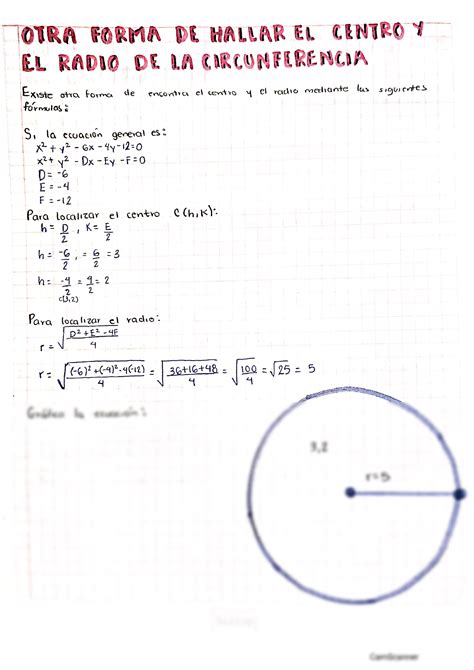 OTRA FORMA DE HALLAR EL CENTRO Y
EL RADIO DE LA CIRCUNFERENCIA
Existe otra forma de encontra el centro y el radio mediante las siguientes
fórmulas:
Si la ecuación general es:
x² + y² - 6x - 4y - 12 = 0
x² + y² - Dx - Ey - F = 0
D = -6
E = -4
F = -12
Para localizar el centro C(h,K):
h = D/2 , K = E/2
h = -6/2 , = 6/2 = 3
h = -4/2 = 4/2 = 2
C(3,2)
Para localizar el radio:
r = √(D² + E² - 4F / 4)
r = √((-6)² + (-4)² - 4(-12) / 4) = √(36+16+48 / 4) = √(100 / 4) = √25 = 5
Gráfica la ecuación:
3,2
r=5
CamScanner